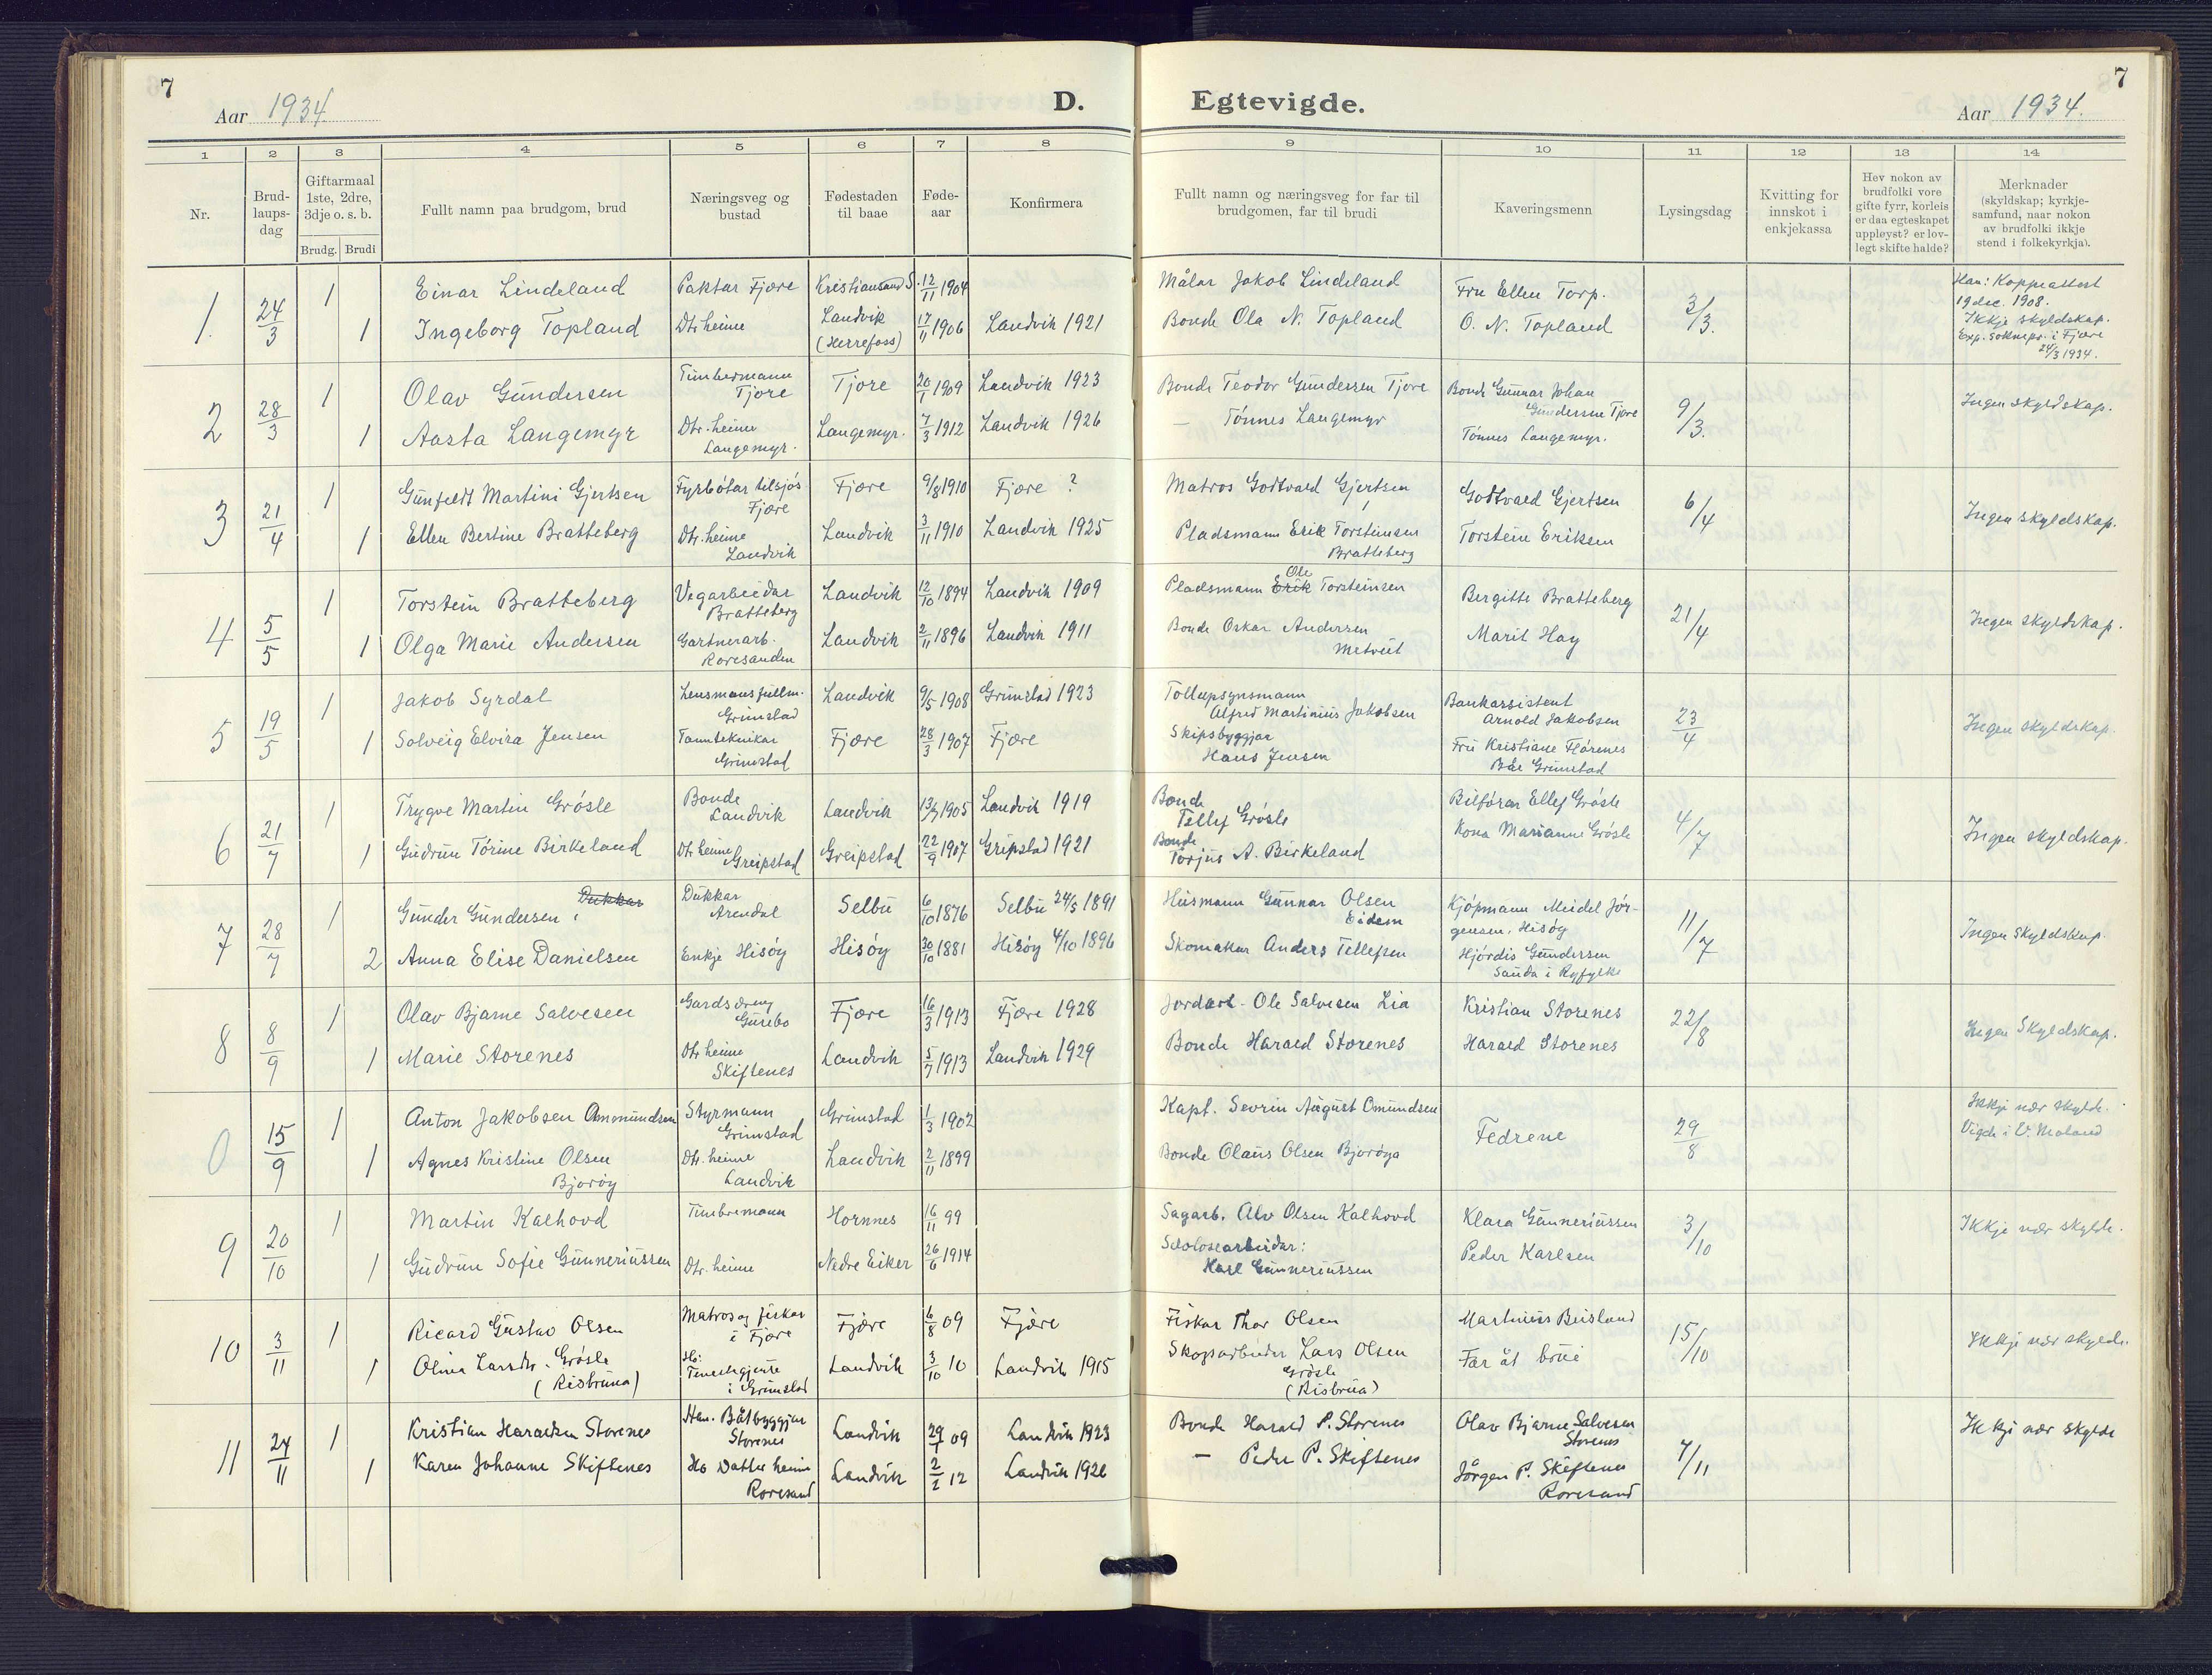 7
Aar 1934
D.
Egtevigde.
Aar 1934.
7
1 2 3 4 5 6 7 8 9 10 11 12 13 14
Nr.
Brud-
laups-
dag
Giftarmaal
1ste, 2dre,
3dje o. s. b.
Brudg. Brudi
Fullt namn paa brudgom, brud
Næringsveg og
bustad
Fødestaden
til baae
Føde-
aar
Konfirmera
Fullt namn og næringsveg for far til
brudgomen, far til brudi
Kaveringsmenn
Lysingsdag
Kvitting for
innskot i
enkjekassa
Hev nokon av
brudfolki vore
gifte fyrr, korleis
er daa egteskapet
uppløyst? er lov-
legt skifte halde?
Merknader
(skyldskap; kyrkje-
samfund, naar nokon
av brudfolki ikkje
stend i folkekyrkja).
1. 24/3
1 Einar Lindeland Paktar Fjære Kristiansand S. 12/11 1904 Målar Jakob Lindeland Fru Ellen Torp. 3/3.
1 Ingeborg Topland Dtr heime Landvik (Herrefoss) 17/11 1906 Landvik 1921 Bonde Ola N. Topland O. N. Topland
Han: Koppeattest
19 dec. 1908.
Ikkje skyldskap.
Exp. soknepr. i Fjære
24/3 1934.
2 28/3
1 Olav Gundersen Timbermann Tjore Tjore 20/1 1909 Landvik 1923 Bonde Teodor Gundersen Tjore Bonde Gunnar Johan Gundersen Tjore 9/3. Ingen skyldskap.
1 Aasta Langemyr Dtr. heime Langemyr. Langemyr. 7/3 1912 Landvik 1926 — Tönnes Langemyr Tönnes Langemyr.
3 21/4
1 Gunfeldt Martini Gjertsen Fyrbötar tilsjös Fjære Fjære 9/8 1910 Fjære ? Matros Godtvald Gjertsen Godtvald Gjertsen 6/4 Ingen skyldskap.
1 Ellen Bertine Bratteberg Dtr. heime Landvik Landvik 3/11 1910 Landvik 1925 Pladsmann Erik Torsteinsen Bratteberg Torstein Eriksen
4 5/5
1 Torstein Bratteberg Vegarbeidar Bratteberg Landvik 12/10 1894 Landvik 1909 Pladsmann Erik Ole Torsteinsen Bergitte Bratteberg 21/4 Ingen skyldskap.
1 Olga Marie Andersen Gartnerarb. Roresanden Landvik 2/11 1896 Landvik 1911 Bonde Oskar Andersen Metveit Marit Hay
5 19/5
1 Jakob Syrdal Lensmansfullm. Grimstad Landvik 9/5 1908 Grimstad 1923 Tollupsynsmann Alfred Martinius Jakobsen Bankassistent Arnold Jakobsen 23/4 Ingen skyldskap.
1 Solveig Elvira Jensen Tannteknikar Grimstad Fjære 28/3 1907 Fjære Skipsbyggjar Hans Jensen Fru Kristiane Flörenes Båe Grimstad
6 21/7
1 Trygve Martin Grösle Bonde Landvik Landvik 13/7 1905 Landvik 1919 Bonde Tellef Grösle Bilförar Ellef Grösle 4/7 Ingen skyldskap.
1 Gudrun Törine Birkeland Dtr heime Greipstad Greipstad 22/9 1907 Gripstad 1921 Bonde Torjus A. Birkeland Kona Marianne Grösle
7 28/7
1 Gunder Gundersen, Dukkar Dukkar Arendal Selbu 6/10 1876 Selbu 24/5 1891 Husmann Gunnar Olsen Eidem Kjöpmann Meidel Jör-gensen, Hisöy 11/7 Ingen skyldskap.
2 Anna Elise Danielsen Enkje Hisöy Hisöy 30/10 1881 Hisöy 4/10 1896 Skomakar Anders Tellefsen Hjördis Gundersen Sauda i Ryfylke
8 8/9
1 Olav Bjarne Salvesen Gardsdreng Gurebo Fjære 16/3 1913 Fjære 1928 Jordarb. Ole Salvesen Lia Kristian Storenes 22/8 Ingen Skyldskap.
1 Marie Storenes Dtr heime Skiftenes Landvik 5/7 1913 Landvik 1929 Bonde Harald Storenes Harald Storenes
0 15/9
1 Anton Jakobsen Ommundsen Styrmann Grimstad Grimstad 1/3 1902 Kapt. Sevrin August Omundsen Fedrene 29/8 Ikkje nær skylde.
Vigde i V. Moland
1 Agnes Kristine Olsen Bjoröy Dtr. heime Landvik Landvik 2/11 1899 Bonde Olaus Olsen Bjoröya
9 20/10
1 Martin Kalhovd Timbremann Hornnes 16/11 99 Sagarb. Alv Olsen Kalhovd Klara Gunneriussen 3/10 Ikkje nær skylde.
1 Gudrun Sofie Gunneriussen Dtr. heime Nedre Eiker 26/6 1914 Karl Gunneriussen Peder Karlsen
10 3/11
1 Ricard Gustav Olsen Matros og fiskar i Fjære Fjære 6/8 09 Fjære Fiskar Thor Olsen Martinius Beisland 15/10 Ikkje nær skylde.
1 Olina Larsdtr. Grösle (Risbruna) Ho: Tenestegjente i Grimstad Landvik 3/10 10 Landvik 1915 Skogsarbeider Lars Olsen Grösle (Risbrua) Far åt brui
11 24/11
1 Kristian Haraldsen Storenes Han. Båtbyggjar Storenes Landvik 29/1 09 Landvik 1923 Bonde Harald P. Storenes Olav Bjarne Salvesen Storenes 7/11 Ikkje nær skylde
1 Karen Johanne Skiftenes Ho Datter heime Roresand Landvik 2/2 12 Landvik 1926 — Peder P. Skiftenes Jörgen P. Skiftenes Roresand